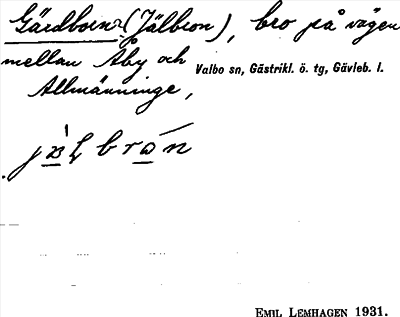 Gärdborn? (Jälbron), bro på vägen
mellan Åby och
Valbo sn, Gästrikl. ö. tg, Gävleb. l.
Allmänninge,
EMIL LEMHAGEN 1931.